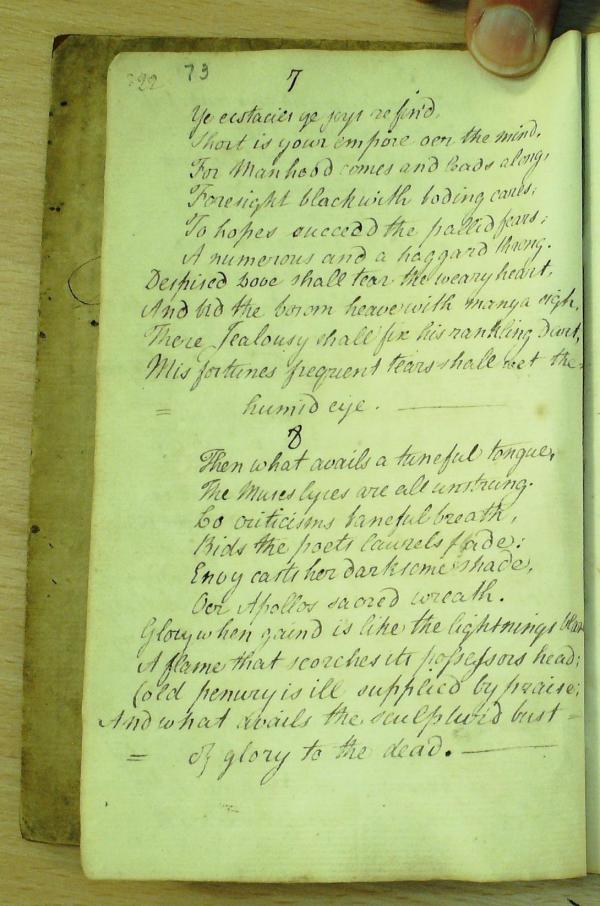 322 73
7
Ye ecstacies ye joys refin'd,
Short is your empire oer the mind,
For Manhood comes and leads along,
Foresight black with boding cares;
To hopes succeed the pallid fears;
A numerous and a haggard throng.
Despised Love shall tear the weary heart,
And bid the bosom heave with many a sigh,
There Jealousy shall fix his rankling Dart,
Misfortunes frequent tears shall wet the
= humid eye.
8
Then what avails a tuneful tongue,
The Muses lyres are all unstrung.
Lo criticisms baneful breath,
Bids the poets laurels fade;
Envy casts her darksome shade,
Oer Apollos sacred wreath.
Glory when gaind is like the lightnings
A flame that scorches its possessors head;
Cold penury is ill supplied by praise;
And what avails the sculptur'd bust =
= of glory to the dead.